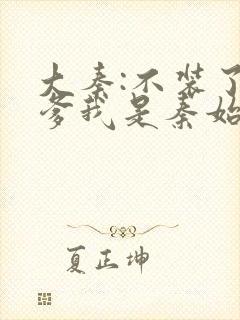 大秦:不装了
爹我是秦始
夏正坤